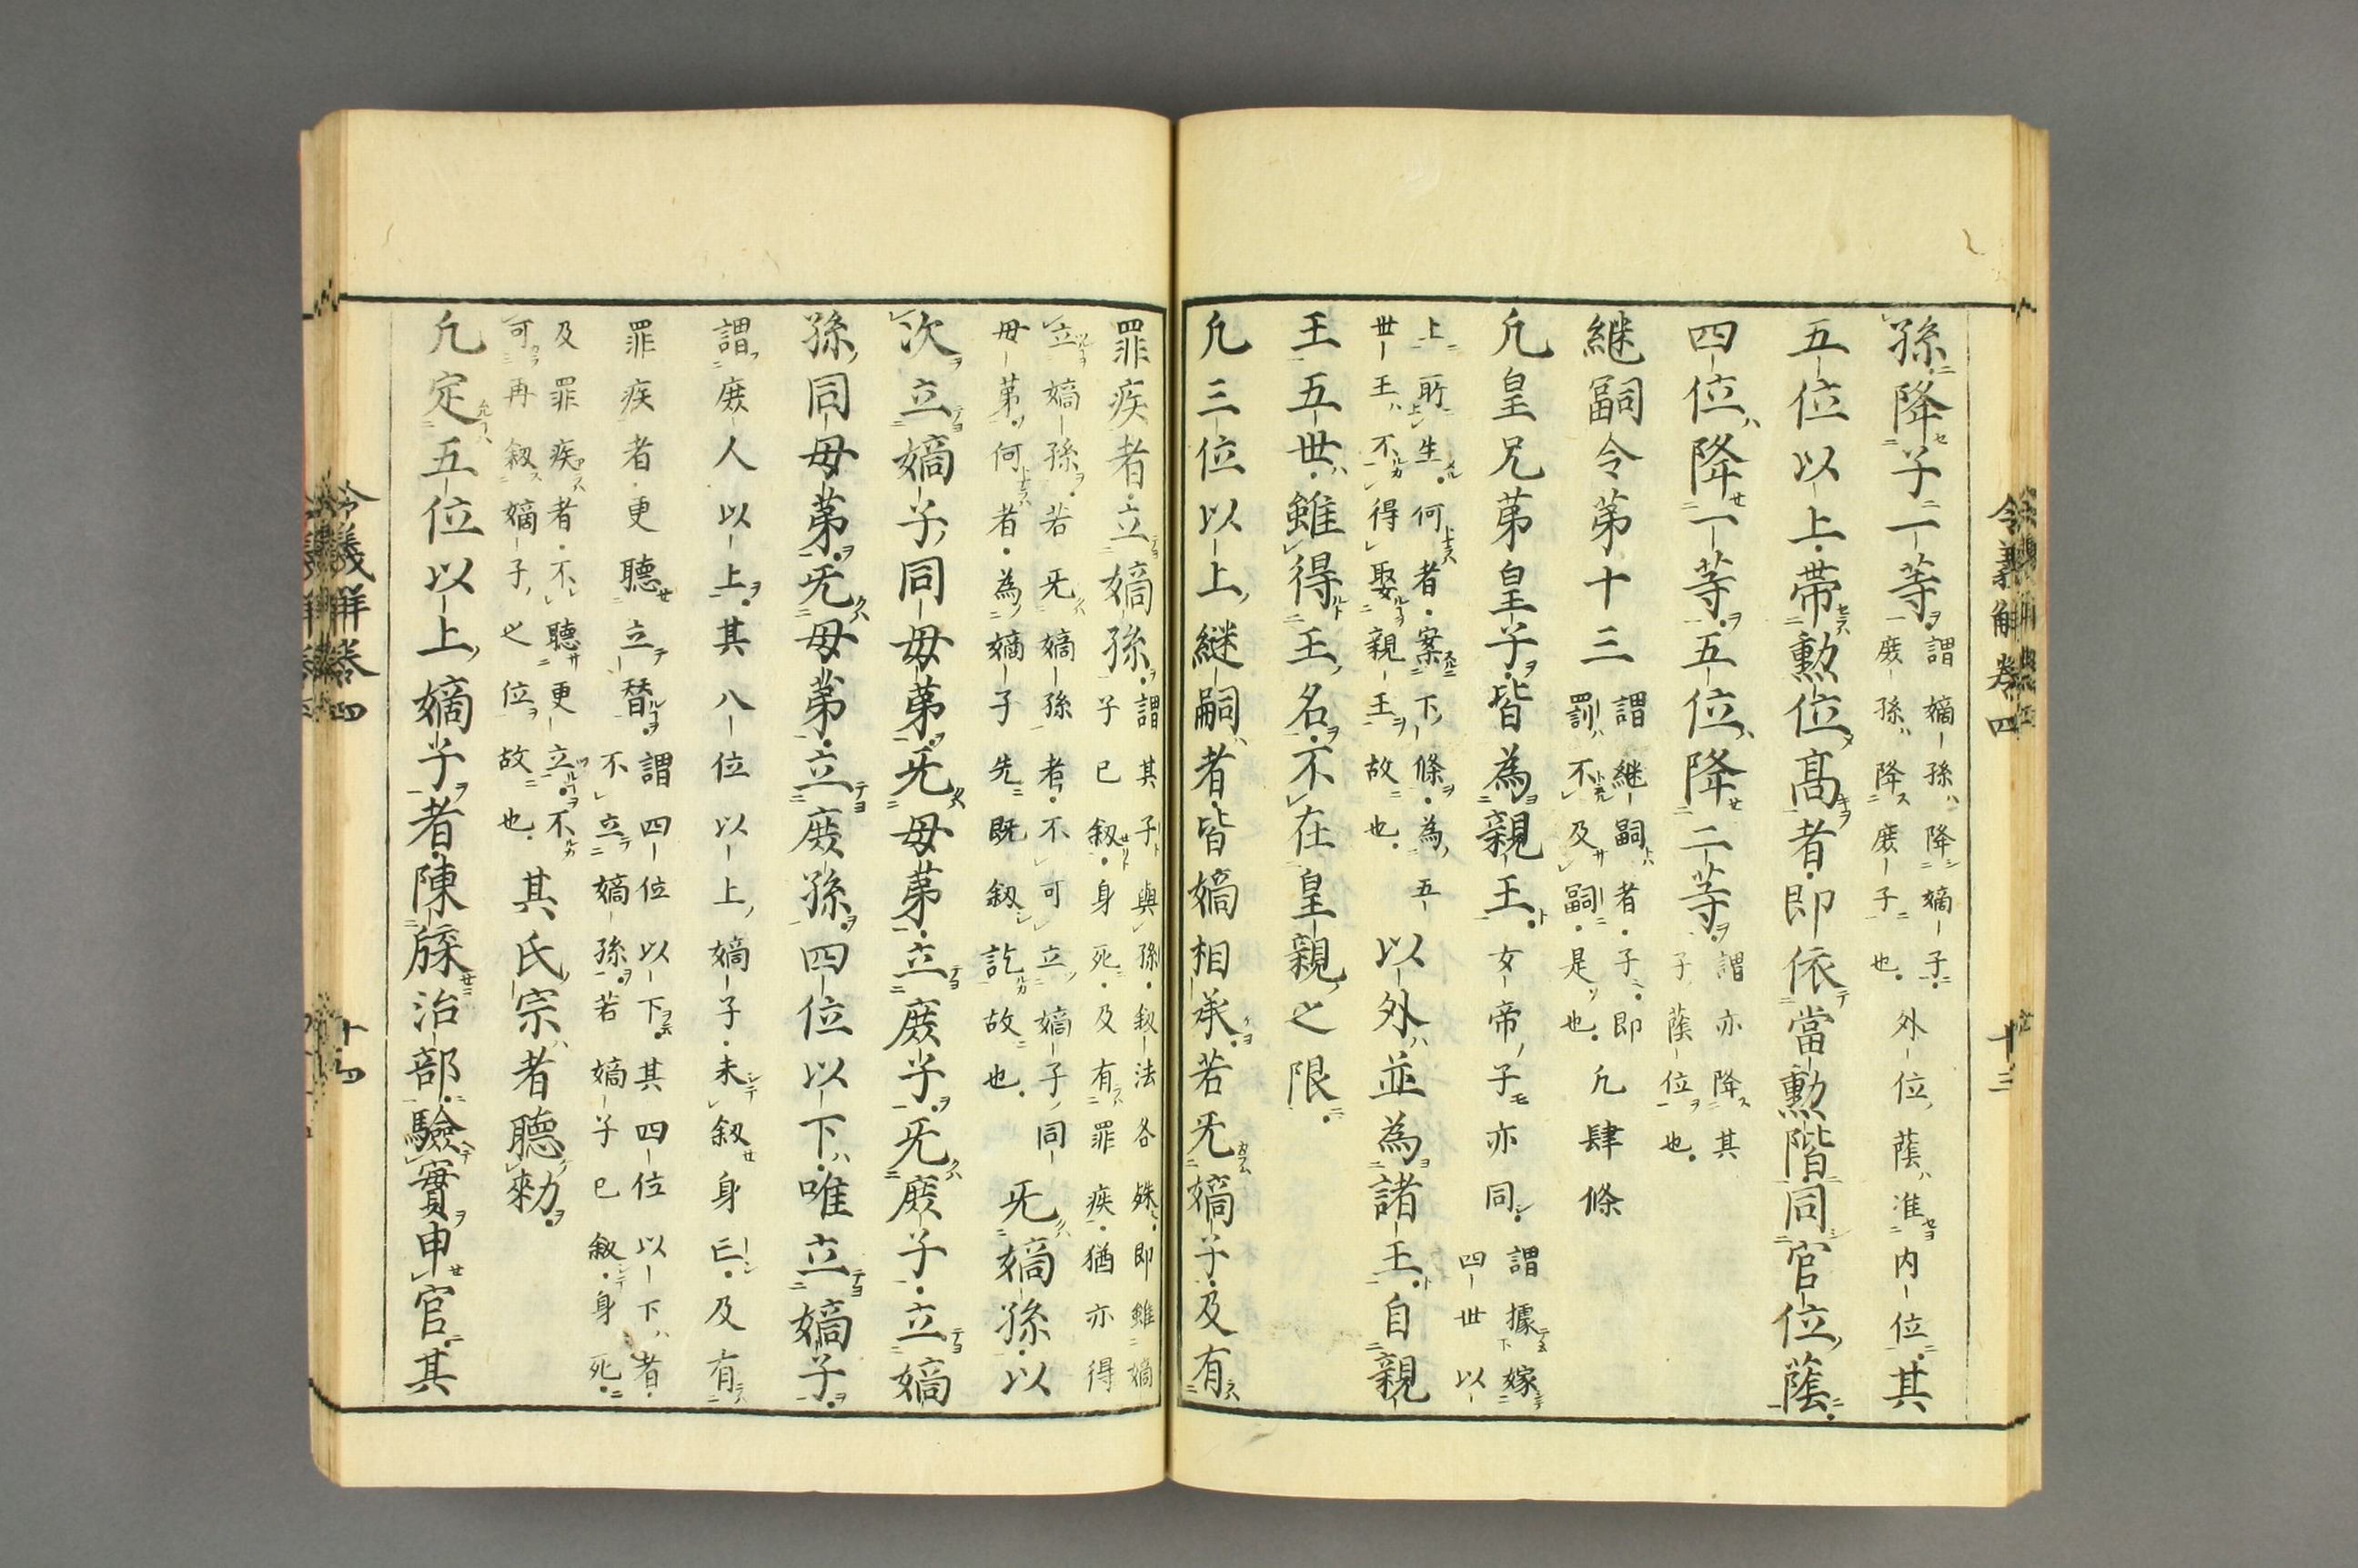 令義解卷四 十三
孫降子一等謂嫡孫降嫡子庶孫降庶子也外位蔭准内位其
五位以上帶勲位髙者即依當勲階同官位蔭
四位降一等五位降二等謂亦降其子蔭位也
継嗣令苐十三謂継嗣者子即罰不及嗣是也凢肆條
凢皇兄苐皇子皆為親王女帝子亦同謂據嫁四世以
上所生何者案下條為五世王不得娶親王故也以外並為諸王自親
王五世雖得王名不在皇親之限
凢三位以上継嗣者皆嫡相承若旡嫡子及有
罪疾者立嫡孫謂其子與孫叙法各殊即雖嫡子已叙身死及有罪疾猶亦得
立嫡孫若旡嫡孫者不可立嫡子同母苐何者為嫡子先既叙訖故也旡嫡孫以
次立嫡子同母苐旡母苐立庶子旡庶子立嫡
孫同母苐旡母苐立庶孫四位以下唯立嫡子
謂庶人以上其八位以上嫡子未叙身亡及有
罪疾者更聽立替謂四位以下其四位以下者不立嫡孫若嫡子已叙身死
及罪疾者不聽更立不可再叙嫡子之位故也其氏宗者聽勅
凢定五位以上嫡子者陳牒治部驗實申官其
令義解卷四 十四